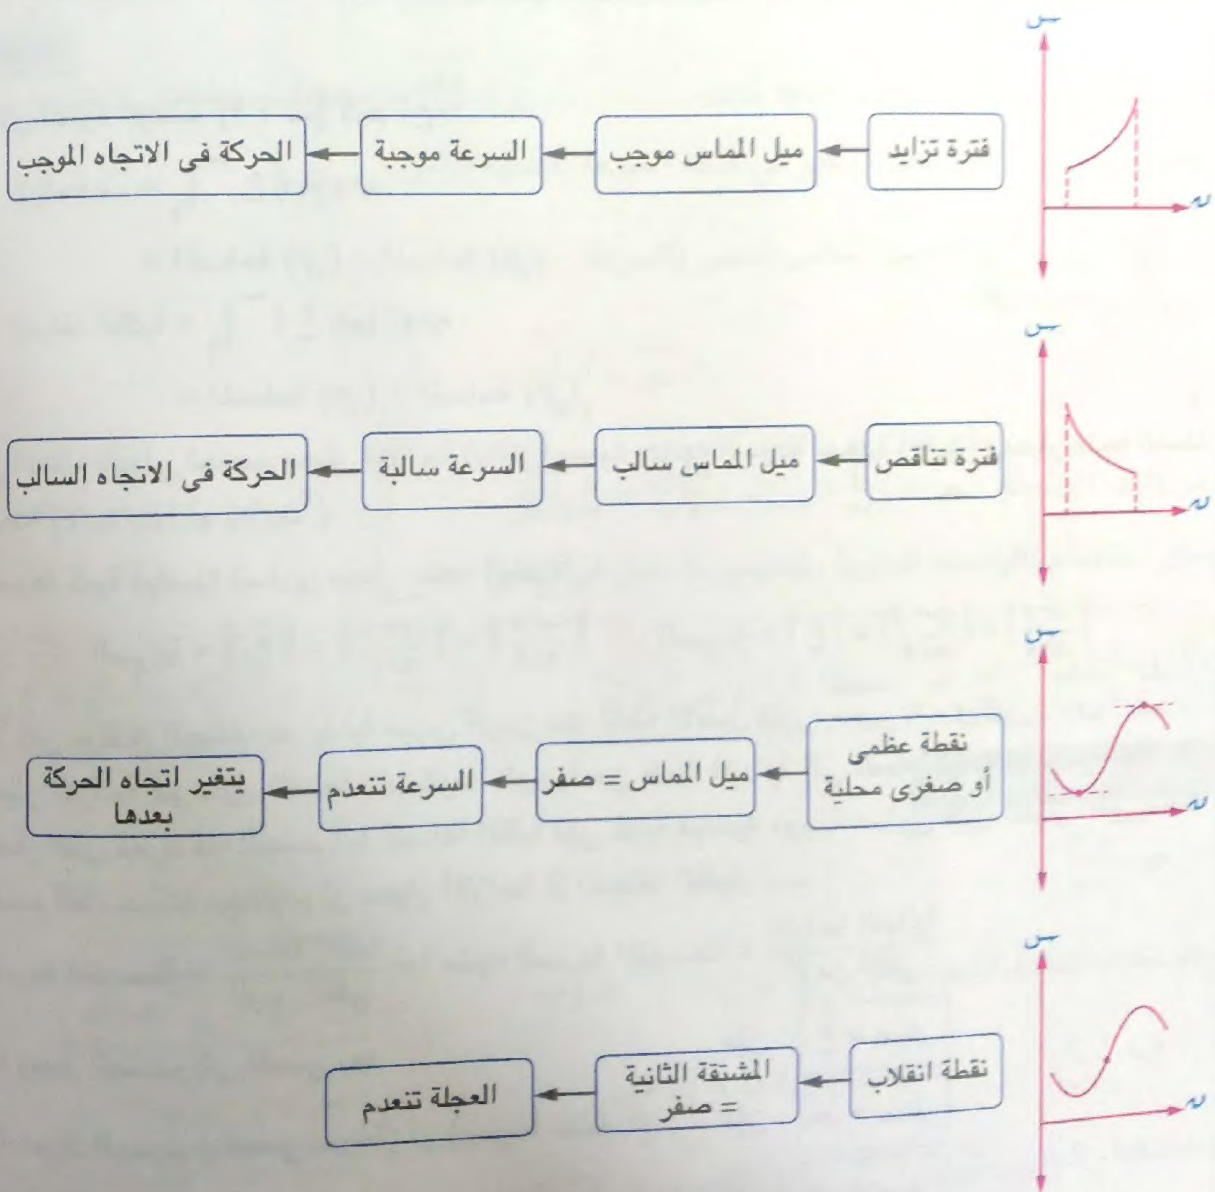 س
فترة تزايد
ميل المماس موجب
السرعة موجبة
الحركة فى الاتجاه الموجب
ن
س
فترة تناقص
ميل المماس سالب
السرعة سالبة
الحركة فى الاتجاه السالب
ن
س
نقطة عظمى
أو صغرى محلية
ميل المماس = صفر
السرعة تنعدم
يتغير اتجاه الحركة
بعدها
ن
س
نقطة انقلاب
المشتقة الثانية
= صفر
العجلة تنعدم
ن